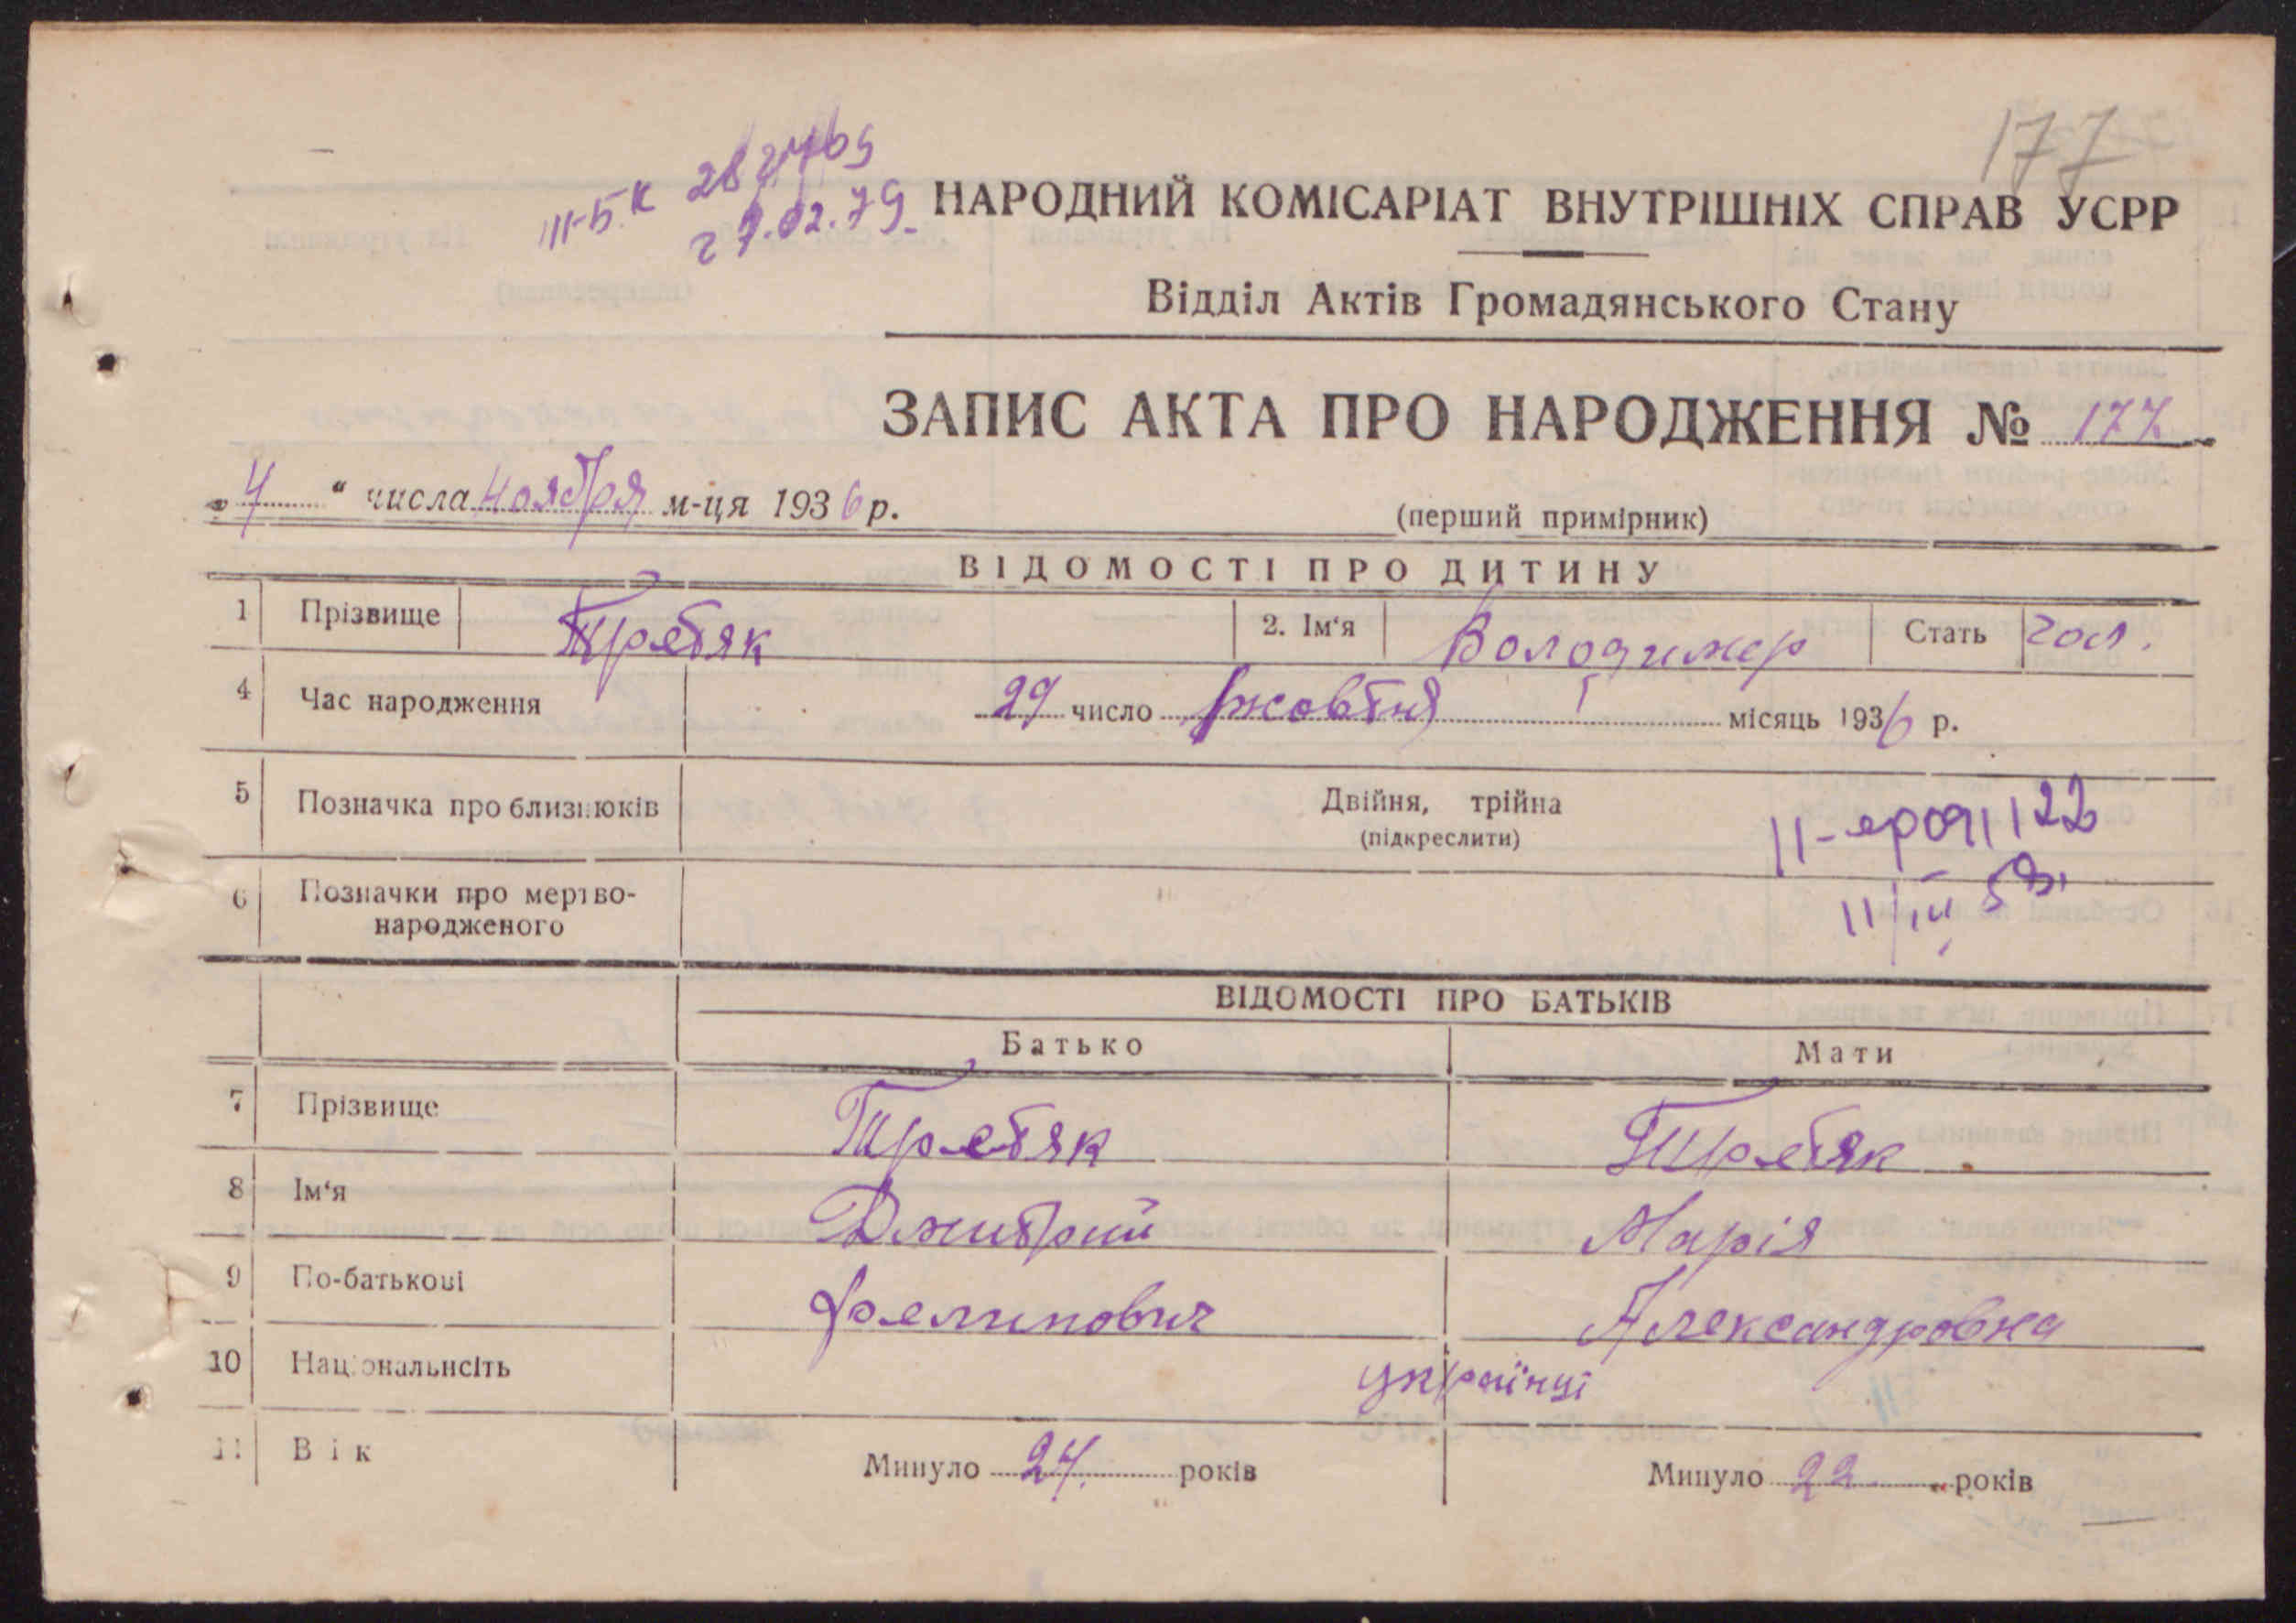 177
III-БК 287469
27.02.79
НАРОДНИЙ КОМІСАРІАТ ВНУТРІШНІХ СПРАВ УСРР
Відділ Актів Громадянського Стану
ЗАПИС АКТА ПРО НАРОДЖЕННЯ № 177
„ 4 “ числа Ноября м-ця 1936 р.
(перший примірник)
ВІДОМОСТІ ПРО ДИТИНУ
1 Прізвище Третяк 2. Ім‘я Володимер Стать чол.
4 Час народження 29 число жовтня місяць 1936 р.
5 Позначка про близнюків Двійня, трійна
(підкреслити)
11/III 59
6 Позначки про мертво-
народженого
ВІДОМОСТІ ПРО БАТЬКІВ
Батько Мати
7 Прізвище Третяк Третяк
8 Ім‘я Дмитрий Марія
9 По-батькові Фелипович Александровна
10 Національнсіть українці
11 Вік Минуло 24 років Минуло 22 років